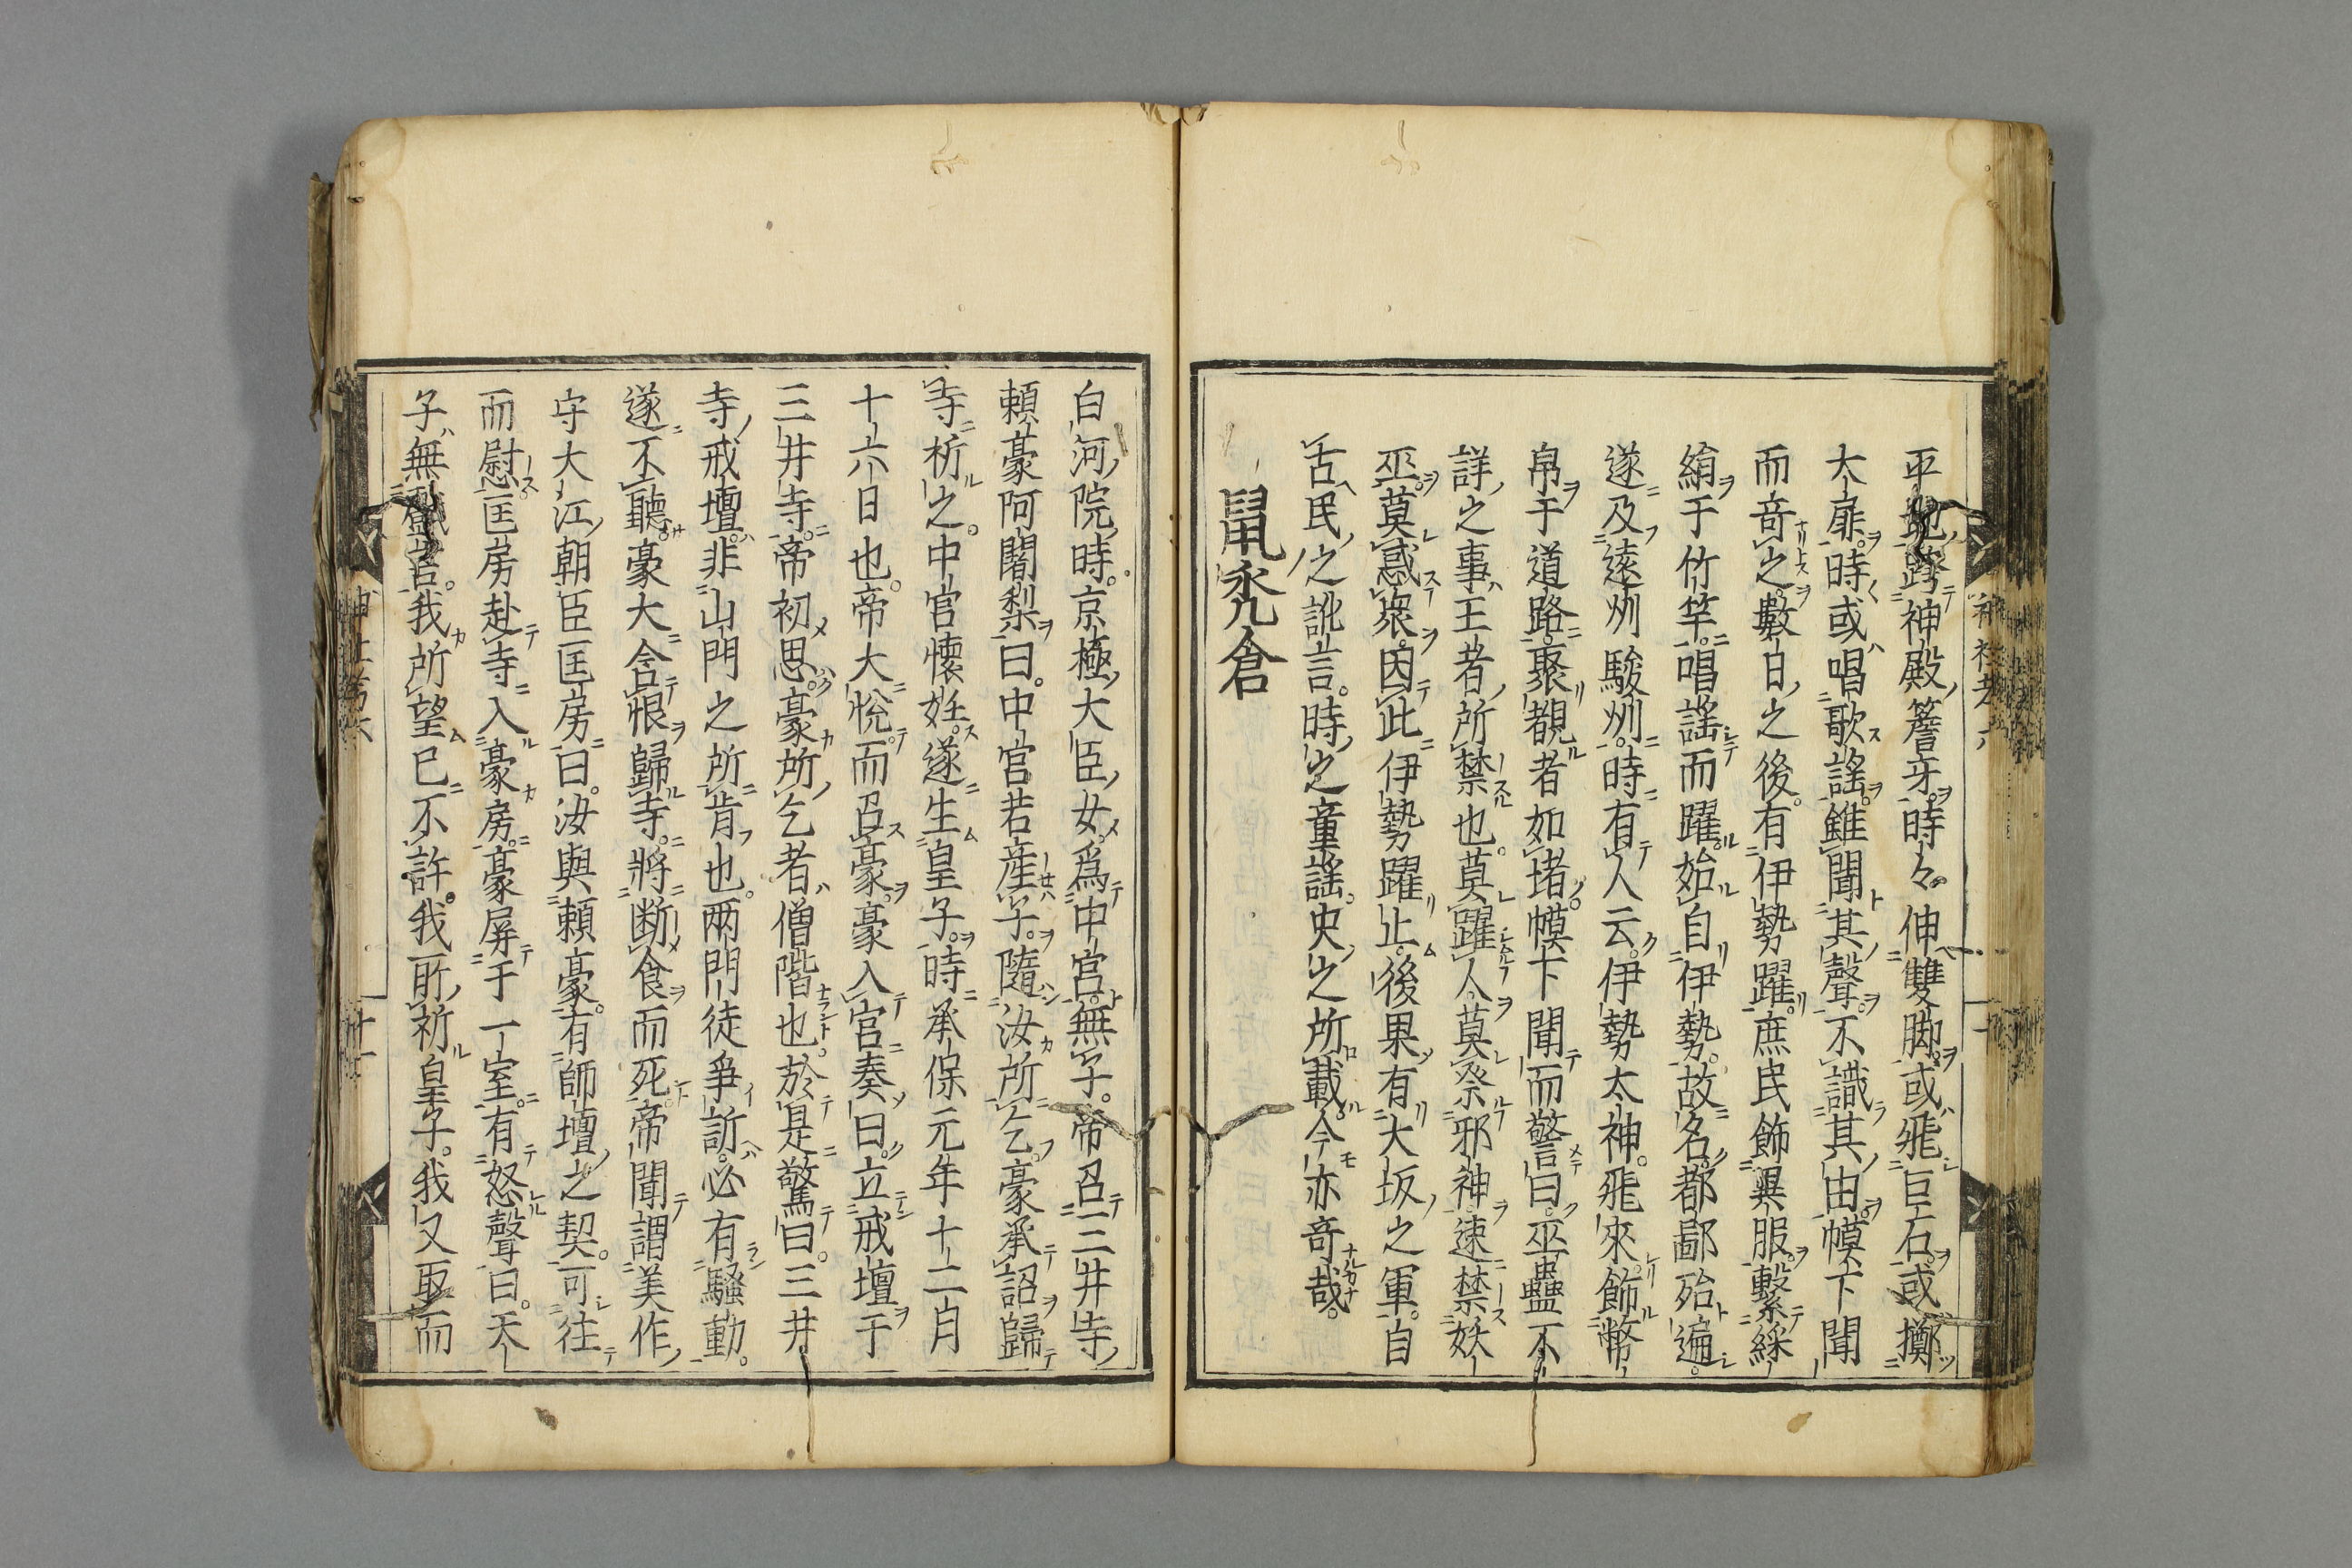 平地跨神殿簷牙。時々伸雙脚。或飛巨石。或擲
大扉。時或唱歌謠。雖聞其聲。不識其由。幞下聞
而奇之。數日之後。有伊勢躍。庶民飾異服。繫綵
絹于竹竿。唱謠而躍。始自伊勢。故名。都鄙殆遍。
遂及遠州駿州。時有人云。伊勢太神飛來。飾幣
帛于道路。聚覩者如堵。幞下聞而警曰。巫蠱不
詳之事。王者所禁也。莫躍人。莫祭邪神。速禁妖
巫。莫惑衆。因此伊勢躍止。後果有大坂之軍。自
古民之訛言。時之童謠。史之所載。今亦奇哉。
鼠禿倉
白河院時。京極大臣女。爲中宮。無子。帝召三井寺
頼豪阿闍梨曰。中宮若産子。隨汝所乞。豪承詔歸
寺祈之。中宮懷妊。遂生皇子。時承保元年十二月
十六日也。帝大悅而召豪。豪入宮奏曰。立戒壇于
三井寺。帝初思。豪所乞者僧階也。於是驚曰。三井
寺戒壇。非山門之所肯也。兩門徒爭訴。必有騷動。
遂不聽。豪大含恨歸寺。將断食而死。帝聞謂美作
守大江朝臣匡房曰。汝與頼豪。有師壇之契。可往
而慰。匡房赴寺入豪房。豪屏于一室。有怒聲曰。天
子無戲言。我所望已不許。我所祈皇子。我又取而